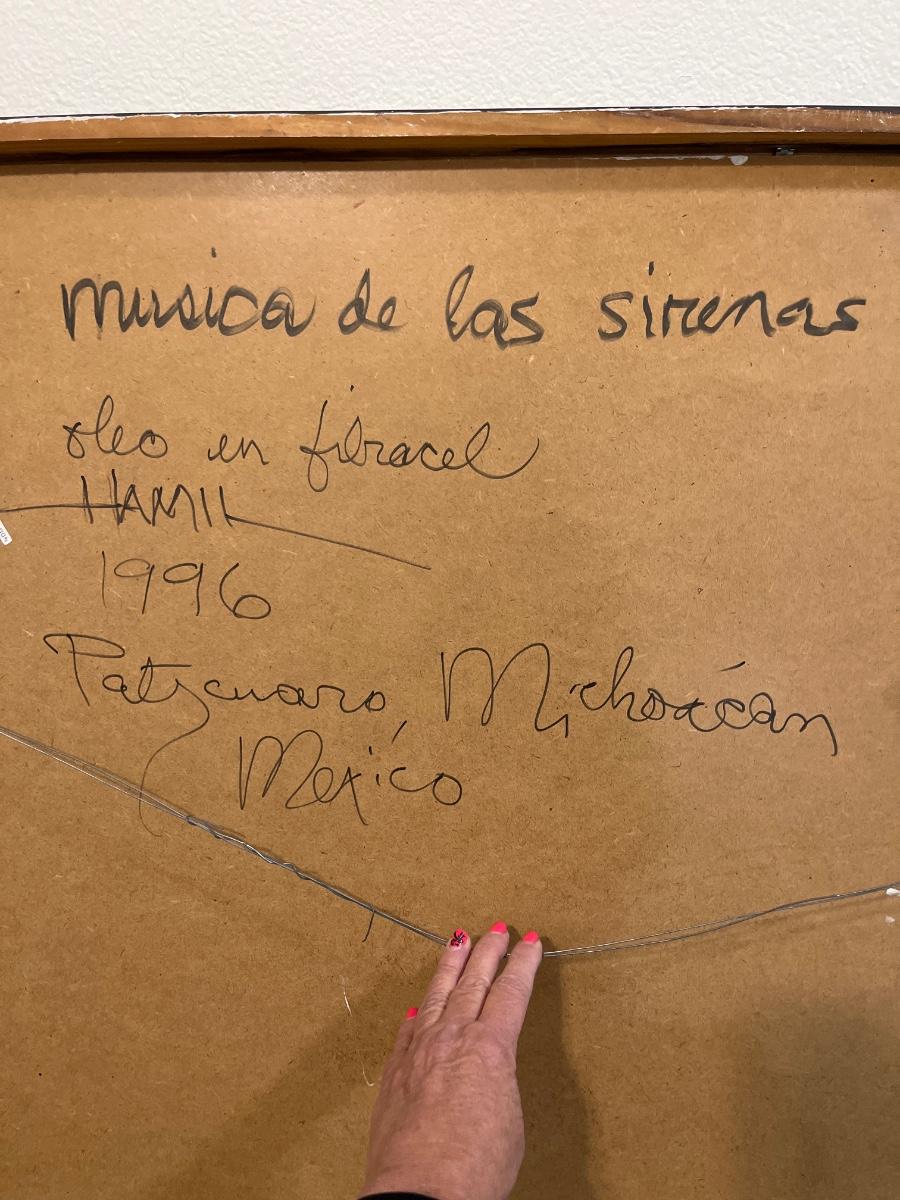 musica de las sirenas
óleo en fibracel
HAMIL
1996
Patzcuaro, Michoacán
México